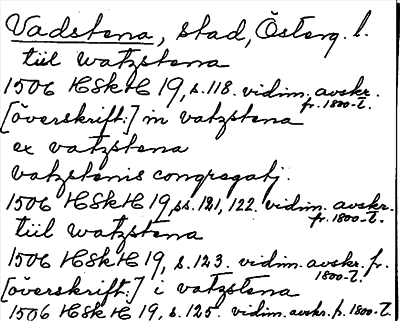 Vadstena, stad, Österg. l.
tiil watzstena
1506 HSkH 19, s. 118. vidim. avskr. fr. 1800-t.
[överskrift:] in vatzstena
ex vatzstena
vatzstenis congregatj.
1506 HSkH 19, ss. 121, 122. vidim. avskr. fr. 1800-t.
tiil watzstena
1506 HSkH 19, s. 123. vidim. avskr. fr. 1800-t.
[överskrift:] i vatzstena
1506 HSkH 19, s. 125. vidim. avskr. fr. 1800-t.